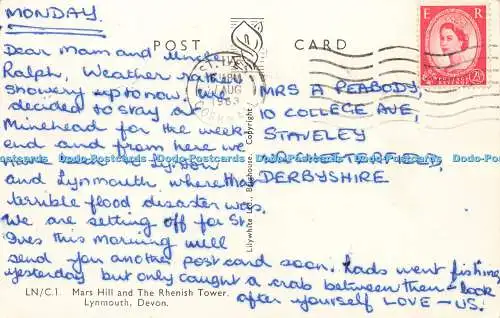 MONDAY.
POST CARD
Dear Mam and Uncle
Ralph, Weather rather
showery up to now, we
decided to stay at
Minehead for the week
end and from here we
and Lynmouth, where that
terrible flood disaster was.
We are setting off for St
Ives this morning will
send you another post card soon. Lads went fishing
yesterday but only caught a crab between them - look
after yourself LOVE - US.
E R
ST. IVES
AUG
1963
CORNWALL
MRS A PEABODY,
10 COLLEGE AVE,
STAVELEY
NR. CHESTERFIELD,
DERBYSHIRE
Lilywhite Ltd., Brighouse. Copyright
LN/C.1 Mars Hill and The Rhenish Tower.
Lynmouth, Devon.
Dodo-Postcards Dodo-Postcards Dodo-Postcards Dodo-Postcards Dodo-Postcards Dodo-Postcards